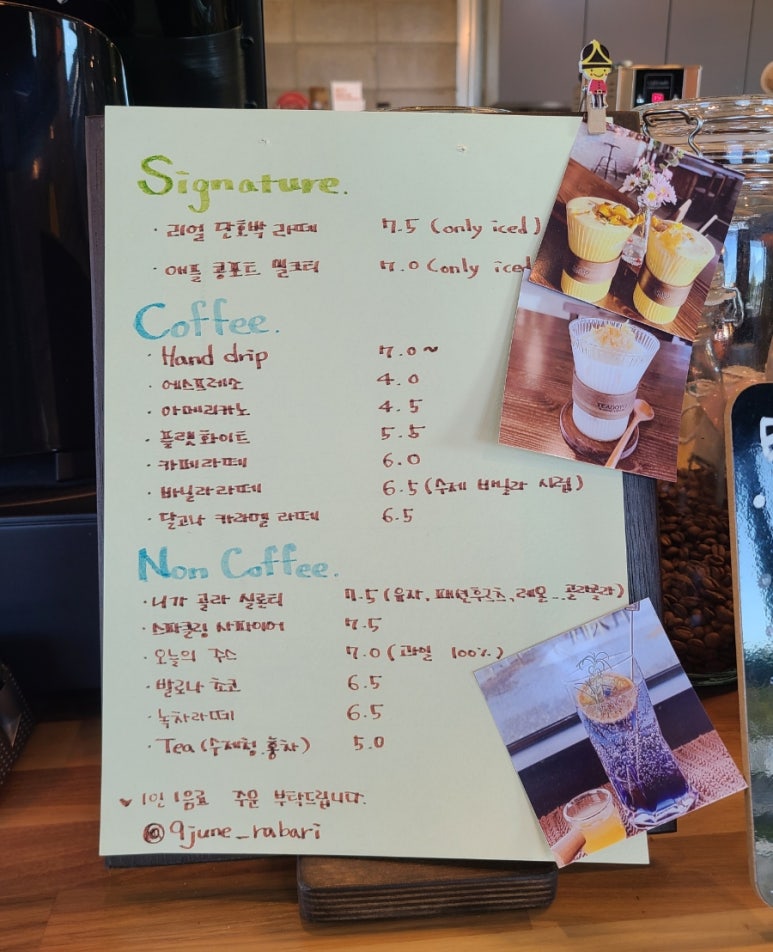 Signature.
· 리얼 단호박 라떼 7.5 (only iced)
· 애플 콩포트 밀크티 7.0 (only iced
Coffee.
· Hand drip 7.0~
· 에스프레소 4.0
· 아메리카노 4.5
· 플랫화이트 5.5
· 카페라떼 6.0
· 바닐라라떼 6.5 (수제 바닐라 시럽)
· 달고나 카라멜 라떼 6.5
Non Coffee.
· 니가 골라 실론티 7.5 (유자, 패션후르츠, 레몬...골라골라)
· 스파클링 사파이어 7.5
· 오늘의 주스 7.0 (과일 100%)
· 발로나 쵸코 6.5
· 녹차라떼 6.5
· Tea (수제청, 홍차) 5.0
♥ 1인 1음료 주문 부탁드립니다.
@9june_rabari